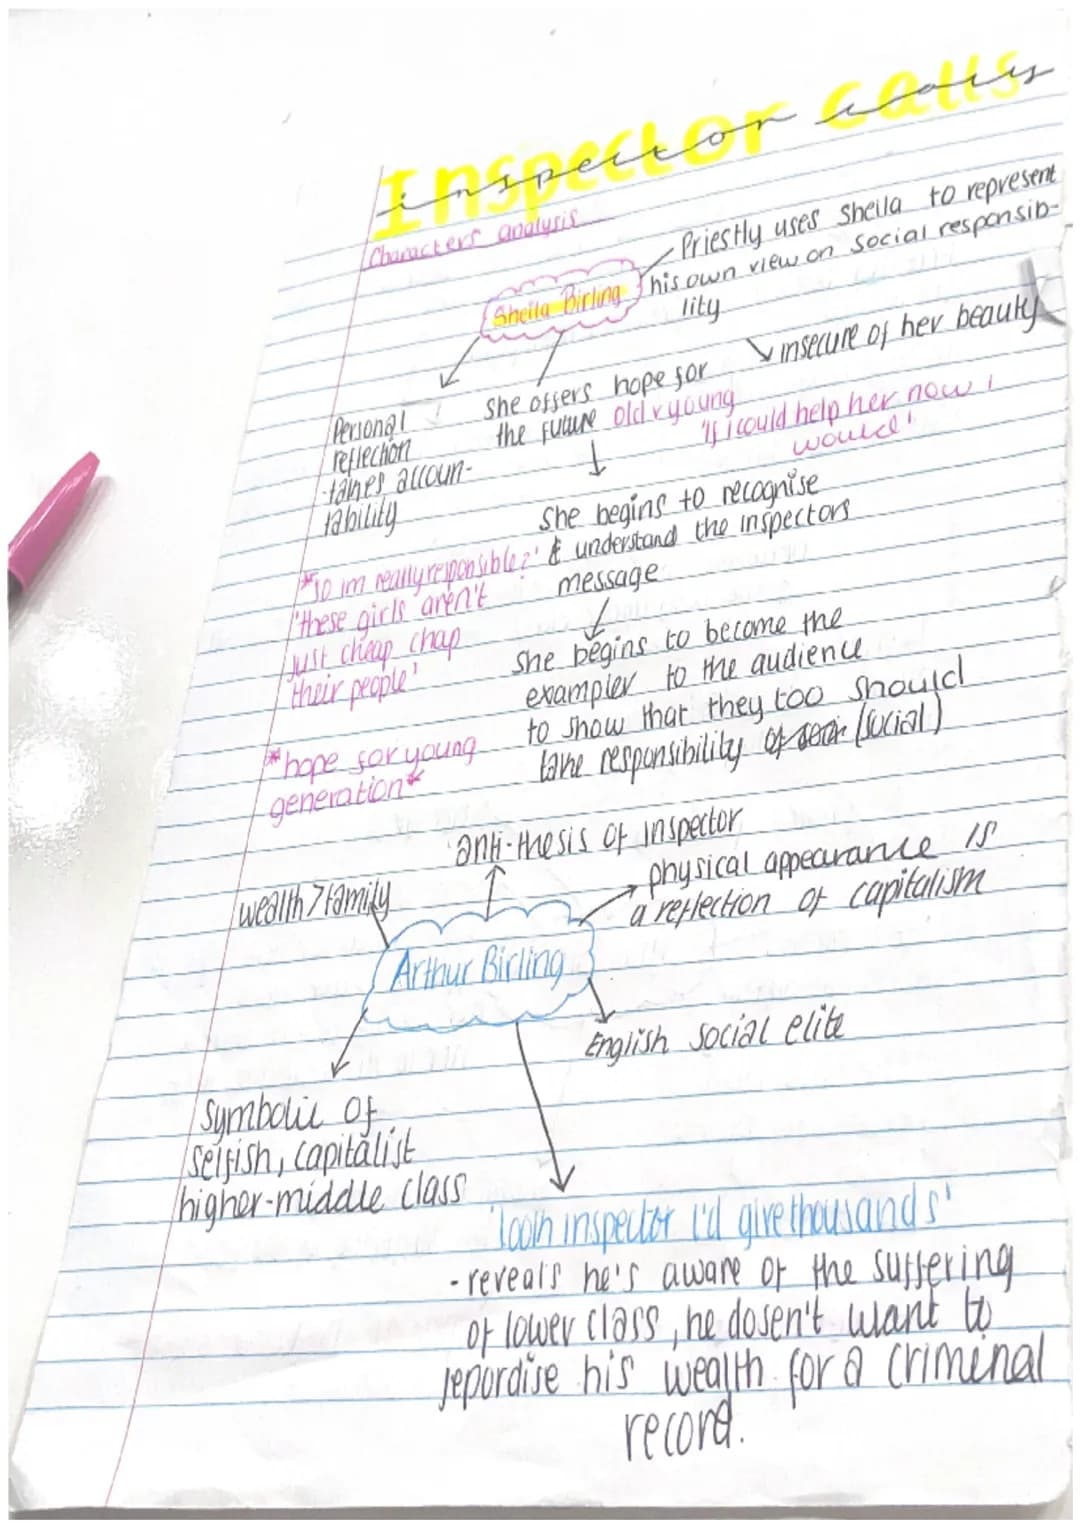 Inspector calls
inspector calls
Characters analysis
Sheila Birling
Priestly uses Sheila to represent
his own view on social responsib-
lity
insecure of her beauty
Personal
reflection
takes accoun-
tability
She offers hope for
the future old v young
'If i could help her now i
would'
She begins to recognise
& understand the inspectors
message
*'so im really responsible?'
'these girls aren't
just cheap chap
their people'
She begins to become the
exampler to the audience
to show that they too should
take responsibility of (social)
*hope for young
generation*
anti-thesis of inspector
wealth > family
physical appearance is
a reflection of capitalism
Arthur Birling
English social elite
Symbolic of
selfish, capitalist
higher-middle class
'look inspector I'd give thousands'
- reveals he's aware of the suffering
of lower class, he dosen't want to
jepordise his wealth for a criminal
record.